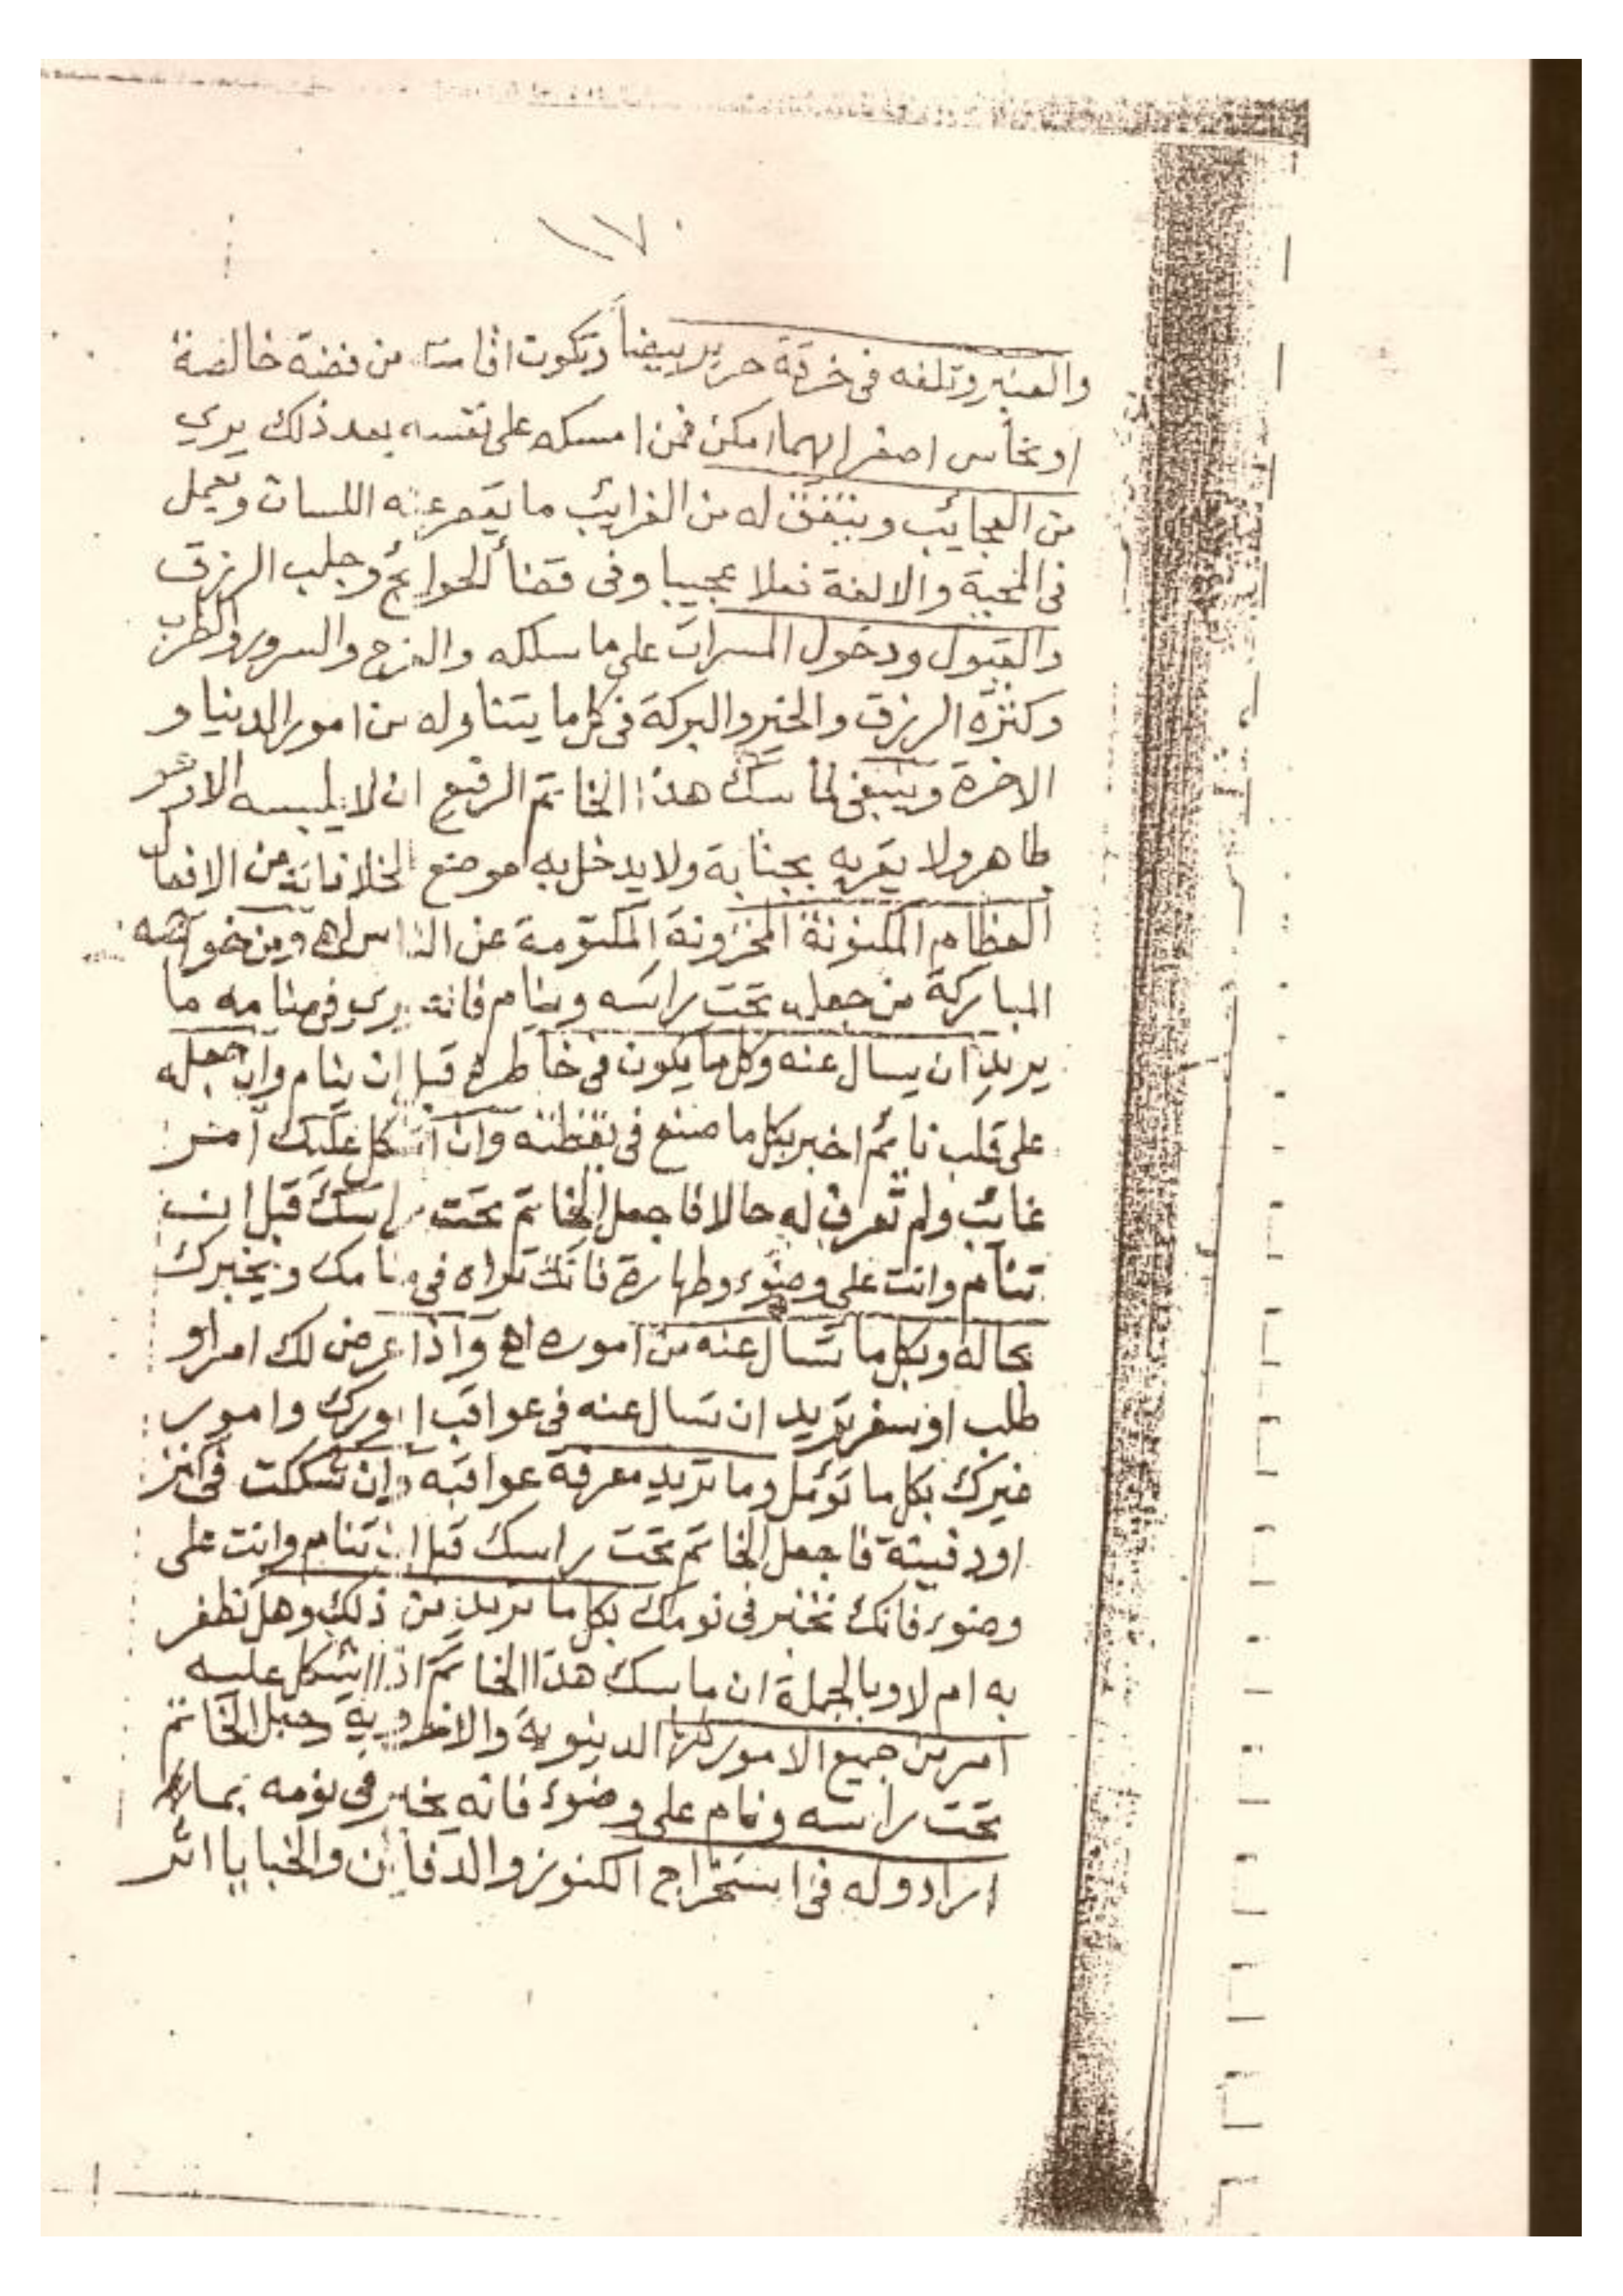 ١٧٠
والعنبر وتلفه فى خرقة حرير بيضاً ويكون الخاتم من فضة خالصة
او نحاس اصفر ايهما امكن فمن امسكه على نفسه بعد ذلك يرى
من العجايب ويتفق له من الغرايب ما يقصر عنه اللسان ويعمل
فى المحبة والالفة فعلا عجيبا وفى قضأ الحوائج وجلب الرزق
والقبول ودخول المسرات على ماسكه والفرح والسرور والطرب
وكثرة الرزق والخير والبركة فى كل ما يتناوله من امور الدنيا و
الاخرة وينبغى لماسك هذا الخاتم الرفيع ان لا يلبسه الا وهو
طاهر ولا يقربه بجنابة ولا يدخل به موضع الخلا فانه من الافعال
العظام المكنونة المخزونة المكتومة عن الناس اهـ ومن خواصه
المباركة من جعله تحت راسه وينام فانه يرى فى منامه ما
يريد ان يسال عنه وكل ما يكون فى خاطره قبل ان ينام وان جعله
على قلب نائم اخبر بكل ما صنع فى يقظته وان اشكل عليك امر
غائب ولم تعرف له حالا فاجعل الخاتم تحت راسك قبل ان
تنام وانت على وضوء وطهارة فانك تراه فى منامك ويخبرك
بحاله وبكل ما تسال عنه من اموره اهـ واذا عرض لك امر او
طلب او سفر تريد ان تسال عنه فى عواقب امورك وامور
غيرك بكل ما تؤمل وما تريد معرفة عواقبه وان شككت فى كنز
او دفينة فاجعل الخاتم تحت راسك قبل ان تنام وانت على
وضوء فانك تخبر فى نومك بكل ما تريد من ذلك وهل تظفر
به ام لا وبالجملة ان ماسك هذا الخاتم اذا اشكل عليه
امر من جميع الامور كلها الدينوية والاخروية وجعل الخاتم
تحت راسه ونام على وضوء فانه يخبر فى نومه بما
اراد وله فى استخراج الكنوز والدفاين والخبايا اثر